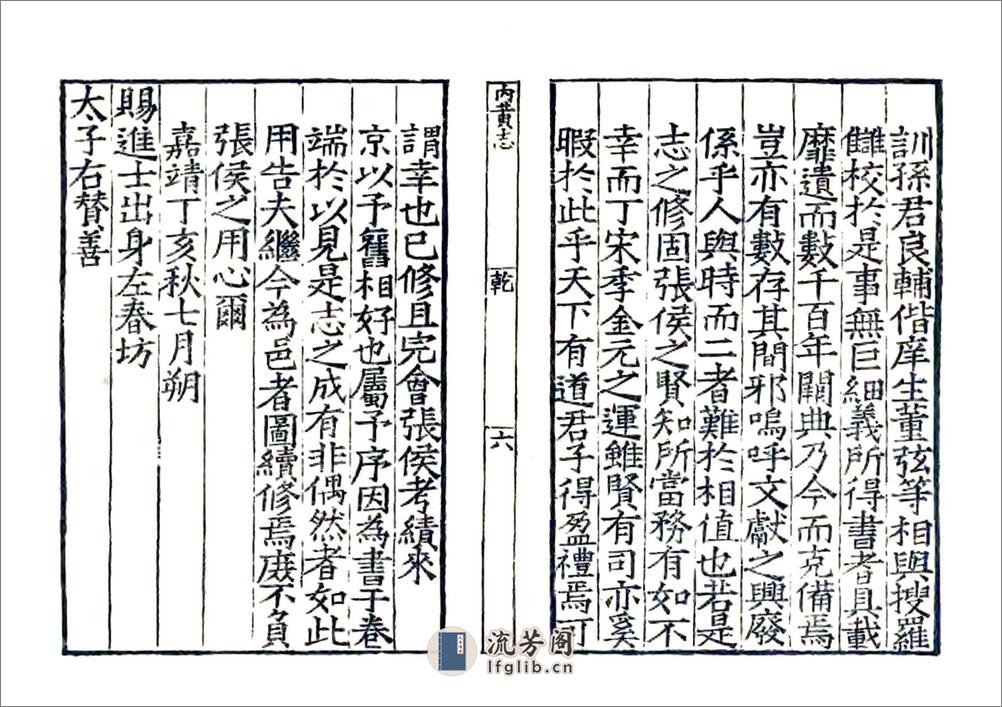 訓孫君良輔偕庠生董弦等相與搜羅
讎校於是事無巨細義所得書者具載
靡遺而數千百年闕典乃今而克備焉
豈亦有數存其間邪嗚呼文獻之興廢
係乎人與時而二者難於相值也若是
志之修固張侯之賢知所當務有如不
幸而丁宋季金元之運雖賢有司亦奚
暇於此乎天下有道君子得盈禮焉可
内黄志
乾
六
謂幸也已修且完會張侯考績來
京以予舊相好也屬予序因為書于卷
端於以見是志之成有非偶然者如此
用告夫繼今為邑者圖續修焉庻不負
張侯之用心爾
嘉靖丁亥秋七月朔
賜進士出身左春坊
太子右賛善
流芳阁
lfglib.cn